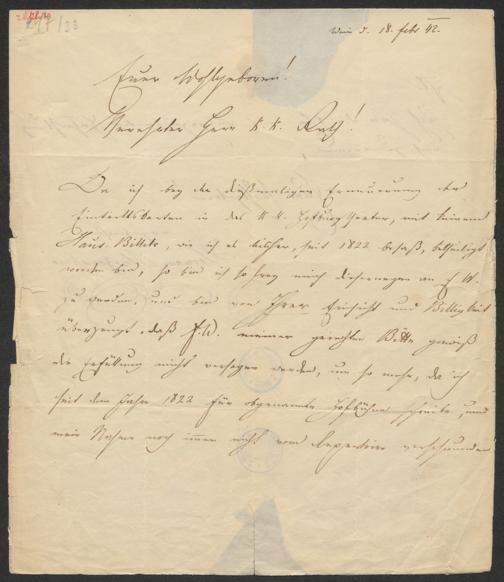 277/33
Wien d. 18. Febr 42.
Euer Wohlgeboren!
Verehrter Herr K. K. Rath!
Da ich bey der dießmaligen Erneuerung der
Eintrittskarten in das K. K. Hofburgtheater, mit keinem
Billete, wie ich es bisher, seit 1822 besaß, betheiligt
worden bin, so bin ich so frey mich deßwegen an E. W.
zu wenden, und bin von Ihrer Einsicht und Billigkeit
überzeugt, daß E. W. meiner gerechten Bitte gewiß
die Erfüllung nicht versagen werden, um so mehr, da ich
seit dem Jahre 1822 für obgenannte Hofbühne schreibe, und
mein Nahme noch immer nicht vom Repertoire verschwunden